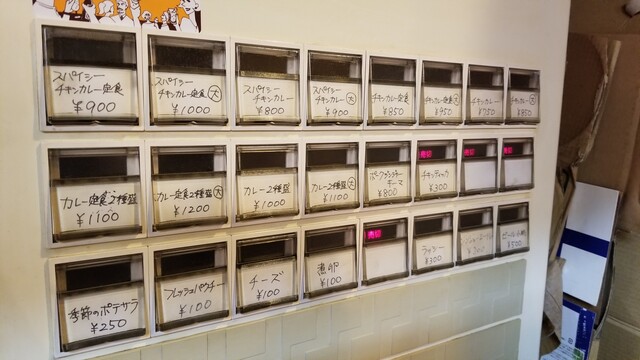 スパイシー
チキンカレー定食
¥900
スパイシー
チキンカレー定食 大
¥1000
スパイシー
チキンカレー
¥800
スパイシー
チキンカレー 大
¥900
チキンカレー定食
¥850
チキンカレー定食 大
¥950
チキンカレー
¥750
チキンカレー 大
¥850
カレー定食2種盛
¥1100
カレー定食2種盛 大
¥1200
カレー2種盛
¥1000
カレー2種盛 大
¥1100
¥800
売切
チキンティッカ
¥300
売切
売切
季節のポテサラ
¥250
フレッシュパクチー
¥100
チーズ
¥100
煮卵
¥100
売切
ラッシー
¥300
¥500